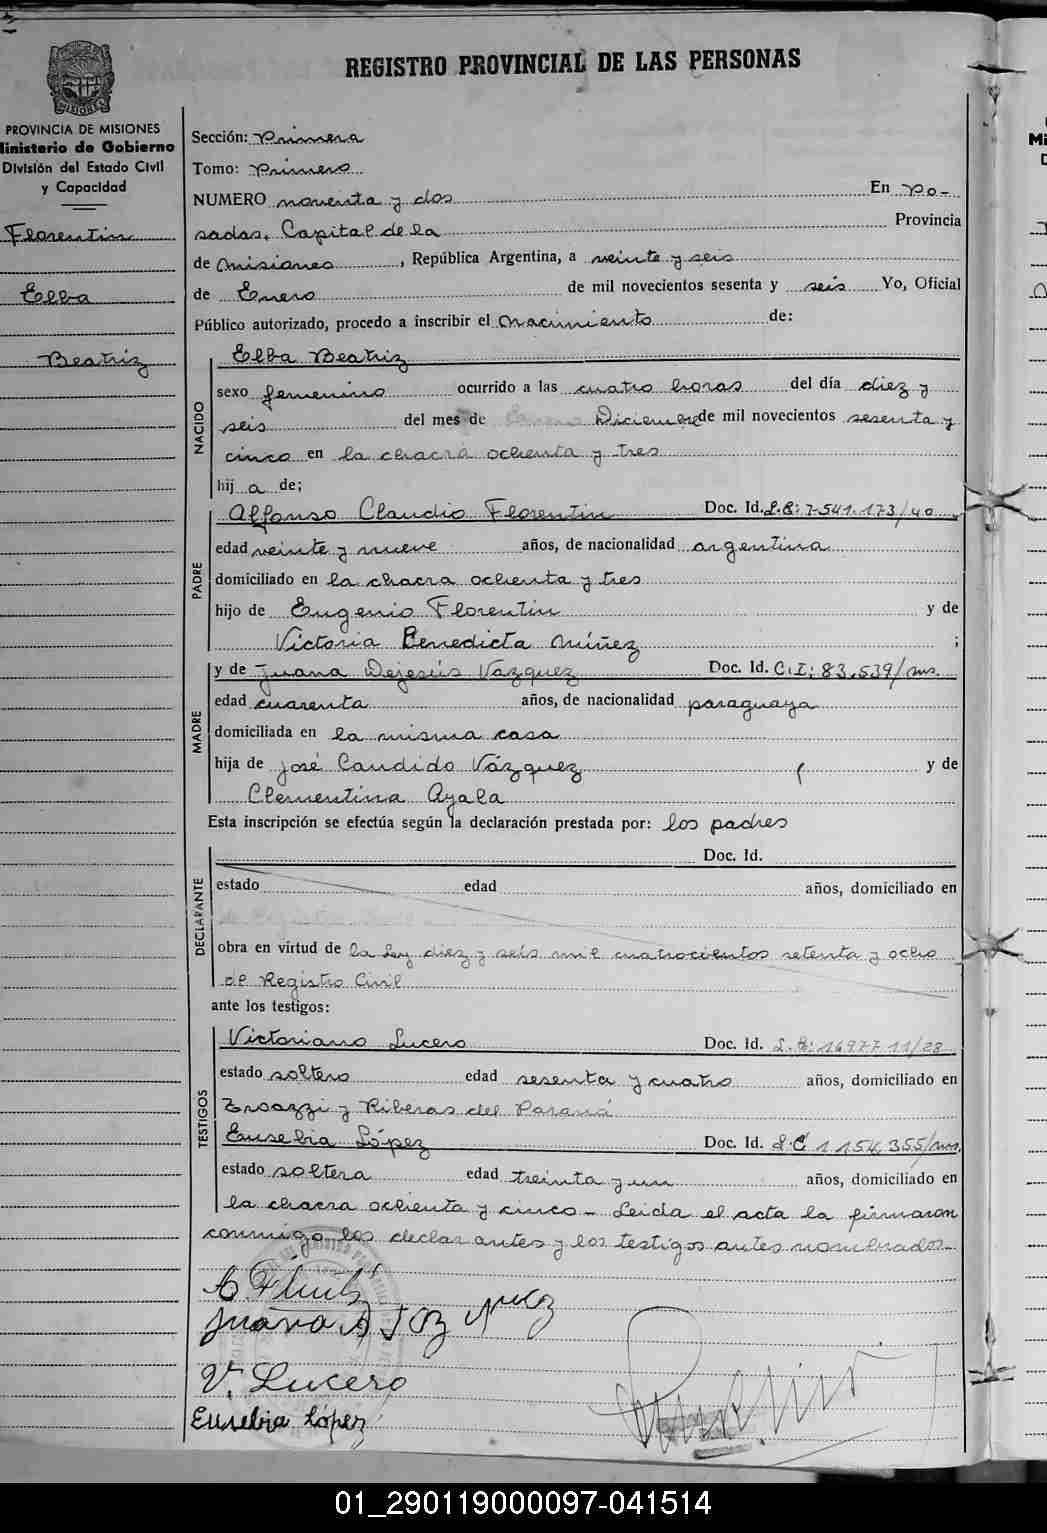 REGISTRO PROVINCIAL DE LAS PERSONAS
MISIONES
PROVINCIA DE MISIONES
Ministerio de Gobierno
División del Estado Civil
y Capacidad
Florentin
Elba
Beatriz
Sección: Primera
Tomo: Primero
NUMERO noventa y dos En Po-
sadas, Capital de la Provincia
de Misiones, República Argentina, a veinte y seis
de Enero de mil novecientos sesenta y seis Yo, Oficial
Público autorizado, procedo a inscribir el Nacimiento de:
NACIDO
Elba Beatriz
sexo femenino ocurrido a las cuatro horas del día diez y
seis del mes de Diciembre de mil novecientos sesenta y
cinco en la chacra ochenta y tres
hij a de;
PADRE
Alfonso Claudio Florentin Doc. Id. L.E: 7.541.173/40
edad veinte y nueve años, de nacionalidad argentina
domiciliado en la chacra ochenta y tres
hijo de Eugenio Florentin y de
Victoria Benedicta Núñez ;
MADRE
y de Juana Dejesús Vázquez Doc. Id. C.I: 83.539/ms.
edad cuarenta años, de nacionalidad paraguaya
domiciliada en la misma casa
hija de José Candido Vázquez y de
Clementina Ayala
Esta inscripción se efectúa según la declaración prestada por: los padres
DECLARANTE
Doc. Id.
estado edad años, domiciliado en
obra en virtud de la Ley diez y seis mil cuatrocientos setenta y ocho
de Registro Civil
ante los testigos:
TESTIGOS
Victoriano Lucero Doc. Id. L.E: 1697711/28
estado soltero edad sesenta y cuatro años, domiciliado en
y Riberas del Paraná
Eusebia López Doc. Id. L.C 1.154.355/ms.
estado soltera edad treinta y un años, domiciliado en
la chacra ochenta y cinco - Leida el acta la firmaron
conmigo los declarantes y los testigos antes nombrados.-
Juana
V. Lucero
Eusebia López
01_290119000097-041514